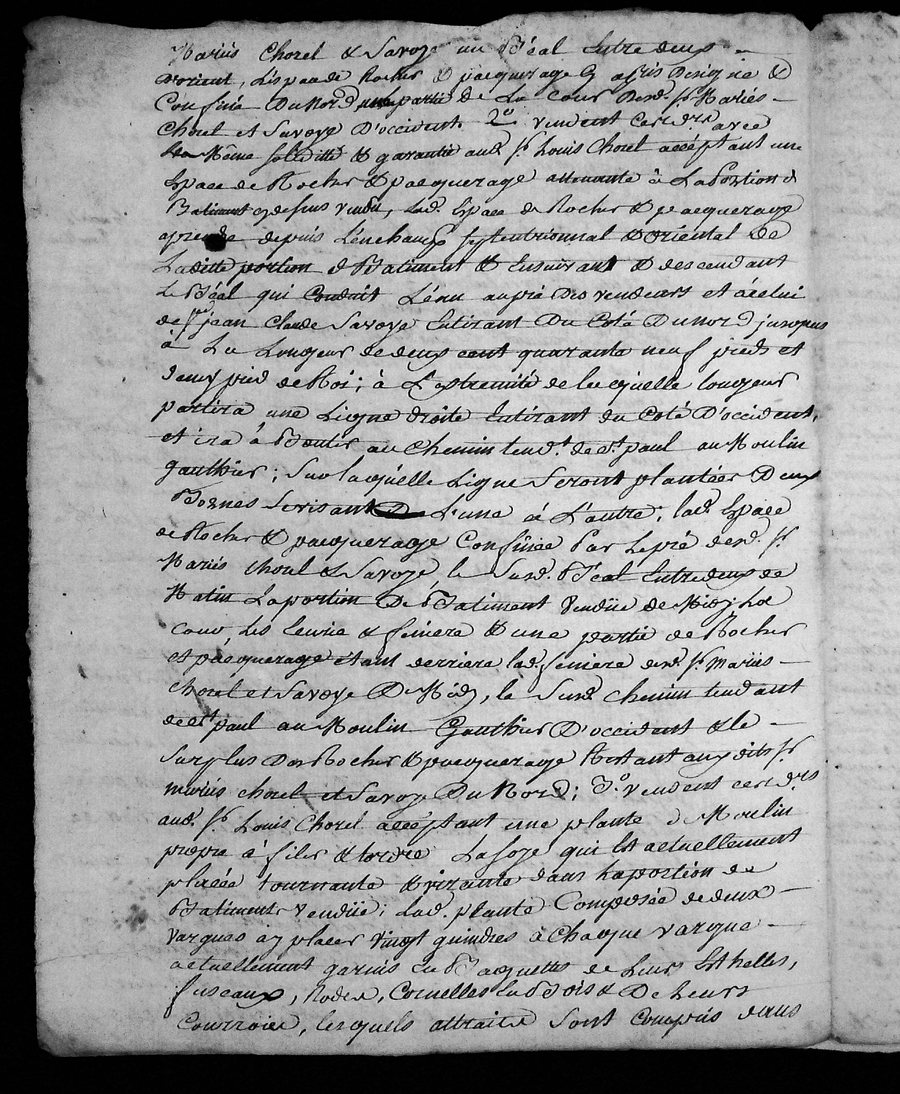 Mariés Chorel & Savoye un Béal Entre deux
Dorient, L'espace de Rocher & pacquerage cy après Designé &
Confiné Du Nord, partie de La Cour Desd. Srs Mariés
Chorel et Savoye D'occident. 2o vendent cesd. avec
Même solidité & garantie aud. Sr. Louis Chorel accéptant une
Espace de Rocher & pacquerage attenante à La portion de
Batiment cy dessus vendu, Lad. Espace de Rocher & pacquerage
aprendre depuis Septentrionnal & oriental de
Laditte portion de Batiment & Ensuivant & descendant
Le Béal qui Conduit L'eau au pré Des vendeurs et à celui
de Sr. jean Claude Savoye Entirant Du Coté Du Nord jusques
à La Longeur de deux cent quarante neuf pieds et
demy pied de Roi; à L'extremité de lacquelle longeur
partira une Ligne droite Entirant du Coté D'occident,
et ira à Boutir au Chemin tend.t de St. paul au Moulin
gauthier; Sur lacquelle Ligne Seront plantées Deux
Bornes Servisant L'une à L'autre; lad. Espace
de Rocher & pacquerage Confinée Par Le pré desd. Srs.
Mariés Chorel & Savoye, le Susd. Béal Entre deux de
Matin La portion De Batiment Vendüe de Midy, La
cour, les & feniere & une partie de Rocher
et pacquerage étant derriere lad. feniere desd. Srs mariés
Chorel et Savoye De Midy, le Susd. chemin tendant
de St. paul au Moulin Gauthier D'occident & le
Surplus Du Rocher & pacquerage Restant auxdits Srs
mariés chorel et Savoye Du Nord; 3o. vendent cesd.
aud. Sr. Louis Chorel accéptant une plante de Moulin
propre à filer & tordre La Soye qui Est actuellement
placée tournante & virante dans La portion de
Batiment vendüe; Lad. plante Composée de deux
Vargues à y placer vingt guindres à Chaque vargue
actuellement garnis de Bacquettes de Leurs Esthelles,
fuseaux, Rodes, Cornelles En Bois & De Leurs
Courroies, lesquels attraits Sont Compris dans